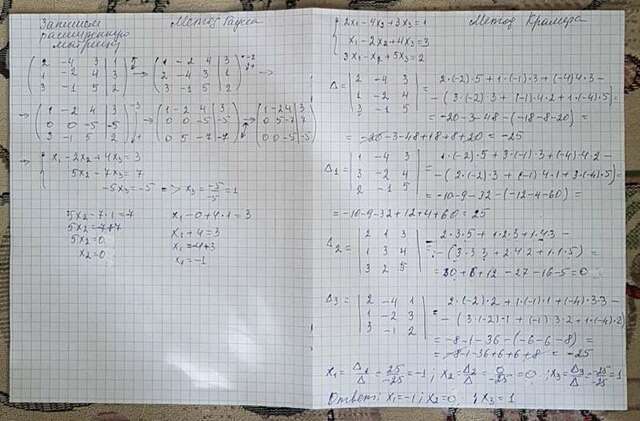 Запишем
расширенную
матрицу
Метод Гаусса
( 2 -4 3 | 1
1 -2 4 | 3
3 -1 5 | 2 ) → ( 1 -2 4 | 3
2 -4 3 | 1
3 -1 5 | 2 ) →
→ ( 1 -2 4 | 3
0 0 -5 | -5
3 -1 5 | 2 ) → ( 1 -2 4 | 3
0 0 -5 | -5
0 5 -7 | -7 ) → ( 1 -2 4 | 3
0 5 -7 | -7
0 0 -5 | -5 )
→ { x₁ - 2x₂ + 4x₃ = 3
5x₂ - 7x₃ = 7
-5x₃ = -5 => x₃ = -5/-5 = 1
5x₂ - 7·1 = 7
5x₂ = -7+7
5x₂ = 0
x₂ = 0
x₁ - 0 + 4·1 = 3
x₁ + 4 = 3
x₁ = -4+3
x₁ = -1
Метод Крамера
{ 2x₁ - 4x₂ + 3x₃ = 1
x₁ - 2x₂ + 4x₃ = 3
3x₁ - x₂ + 5x₃ = 2
Δ = | 2 -4 3
1 -2 4
3 -1 5 | = 2·(-2)·5 + 1·(-1)·3 + (-4)·4·3 -
- (3·(-2)·3 + (-1)·4·2 + 1·(-4)·5) =
= -20-3-48-(-18-8-20) =
= -20-3-48+18+8+20 = -25
Δ₁ = | 1 -4 3
3 -2 4
2 -1 5 | = 1·(-2)·5 + 3·(-1)·3 + (-4)·4·2 -
- (2·(-2)·3 + (-1)·4·1 + 3·(-4)·5) =
= -10-9-32-(-12-4-60) =
= -10-9-32+12+4+60 = 25
Δ₂ = | 2 1 3
1 3 4
3 2 5 | = 2·3·5 + 1·2·3 + 1·4·3 -
- (3·3·3 + 2·4·2 + 1·1·5) =
= 30+6+12-27-16-5 = 0
Δ₃ = | 2 -4 1
1 -2 3
3 -1 2 | = 2·(-2)·2 + 1·(-1)·1 + (-4)·3·3 -
- (3·(-2)·1 + (-1)·3·2 + 1·(-4)·2)
= -8-1-36-(-6-6-8) =
= -8-1-36+6+6+8 = -25
x₁ = Δ₁/Δ = 25/-25 = -1 ; x₂ = Δ₂/Δ = 0/-25 = 0 ; x₃ = Δ₃/Δ = -25/-25 = 1
Ответ: x₁ = -1; x₂ = 0, x₃ = 1